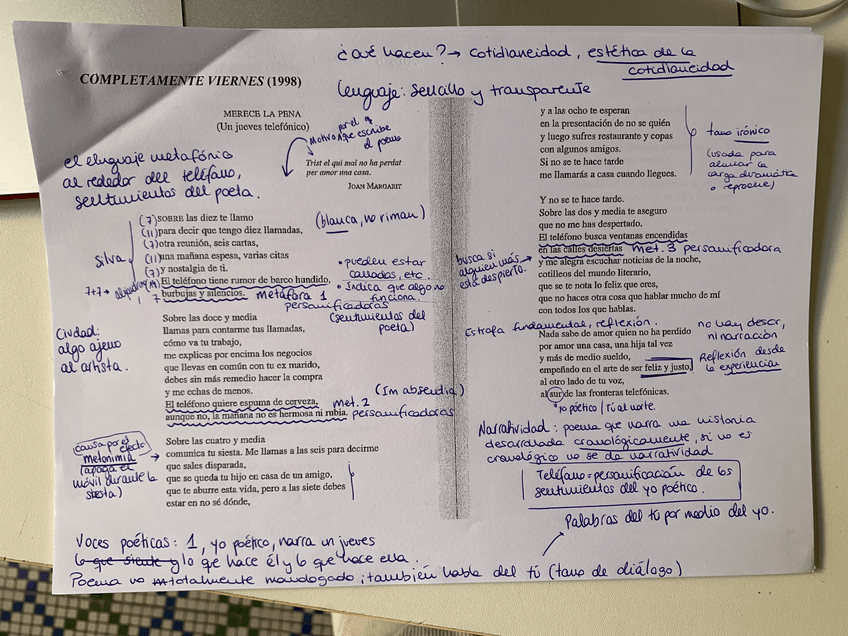 ¿Qué hacen? → cotidianeidad, estética de la
cotidianeidad
COMPLETAMENTE VIERNES (1998)
lenguaje: sencillo y transparente
MERECE LA PENA
(Un jueves telefónico)
Motivo por el q
que escribe
el poema
Trist el qui mai no ha perdut
per amor una casa.
JOAN MARGARIT
el lenguaje metafórico
al rededor del teléfono,
sentimientos del poeta.
(blanca, no riman)
Silva
(7) SOBRE las diez te llamo
(11) para decir que tengo diez llamadas,
(7) otra reunión, seis cartas,
(11) una mañana espesa, varias citas
(7) y nostalgia de ti.
7+7→ alejandrino (14) El teléfono tiene rumor de barco hundido,
7 burbujas y silencios. metáfora 1
personificadoras
• pueden estar
callados, etc.
• Indica que algo no
funciona.
(sentimientos del
poeta)
Ciudad:
algo ajeno
al artista.
Sobre las doce y media
llamas para contarme tus llamadas,
cómo va tu trabajo,
me explicas por encima los negocios
que llevas en común con tu ex marido,
debes sin más remedio hacer la compra
y me echas de menos.
El teléfono quiere espuma de cerveza,
aunque no, la mañana no es hermosa ni rubia.
met. 2 (Im absendia)
personificadoras
causa por el efecto
metonimia
(apaga el
móvil durante la
siesta)
Sobre las cuatro y media
comunica tu siesta. Me llamas a las seis para decirme
que sales disparada,
que se queda tu hijo en casa de un amigo,
que te aburre esta vida, pero a las siete debes
estar en no sé dónde,
y a las ocho te esperan
en la presentación de no se quién
y luego sufres restaurante y copas
con algunos amigos.
Si no se te hace tarde
me llamarás a casa cuando llegues.
tono irónico
(usada para
aliviar la
carga dramática
o reproche)
Y no se te hace tarde.
Sobre las dos y media te aseguro
que no me has despertado.
El teléfono busca ventanas encendidas
en las calles desiertas met. 3 personificadora
y me alegra escuchar noticias de la noche,
cotilleos del mundo literario,
que se te nota lo feliz que eres,
que no haces otra cosa que hablar mucho de mí
con todos los que hablas.
busca si
alguien más
está despierto.
Estrofa fundamental, reflexión.
Nada sabe de amor quien no ha perdido
por amor una casa, una hija tal vez
y más de medio sueldo,
empeñado en el arte de ser feliz y justo,
al otro lado de tu voz,
al sur de las fronteras telefónicas.
no hay descr,
ni narración
Reflexión desde
la experiencia
Yo poético / Tú al norte.
Narratividad: poema que narra una historia
desarrollada cronológicamente, si no es
cronológico no se da narratividad
Teléfono = personificación de los
sentimientos del yo poético.
Palabras del tú por medio del yo.
Voces poéticas: 1, yo poético, narra un jueves
lo que siente y lo que hace él y lo que hace ella.
Poema no totalmente monologado; también habla del tú (tono de diálogo)